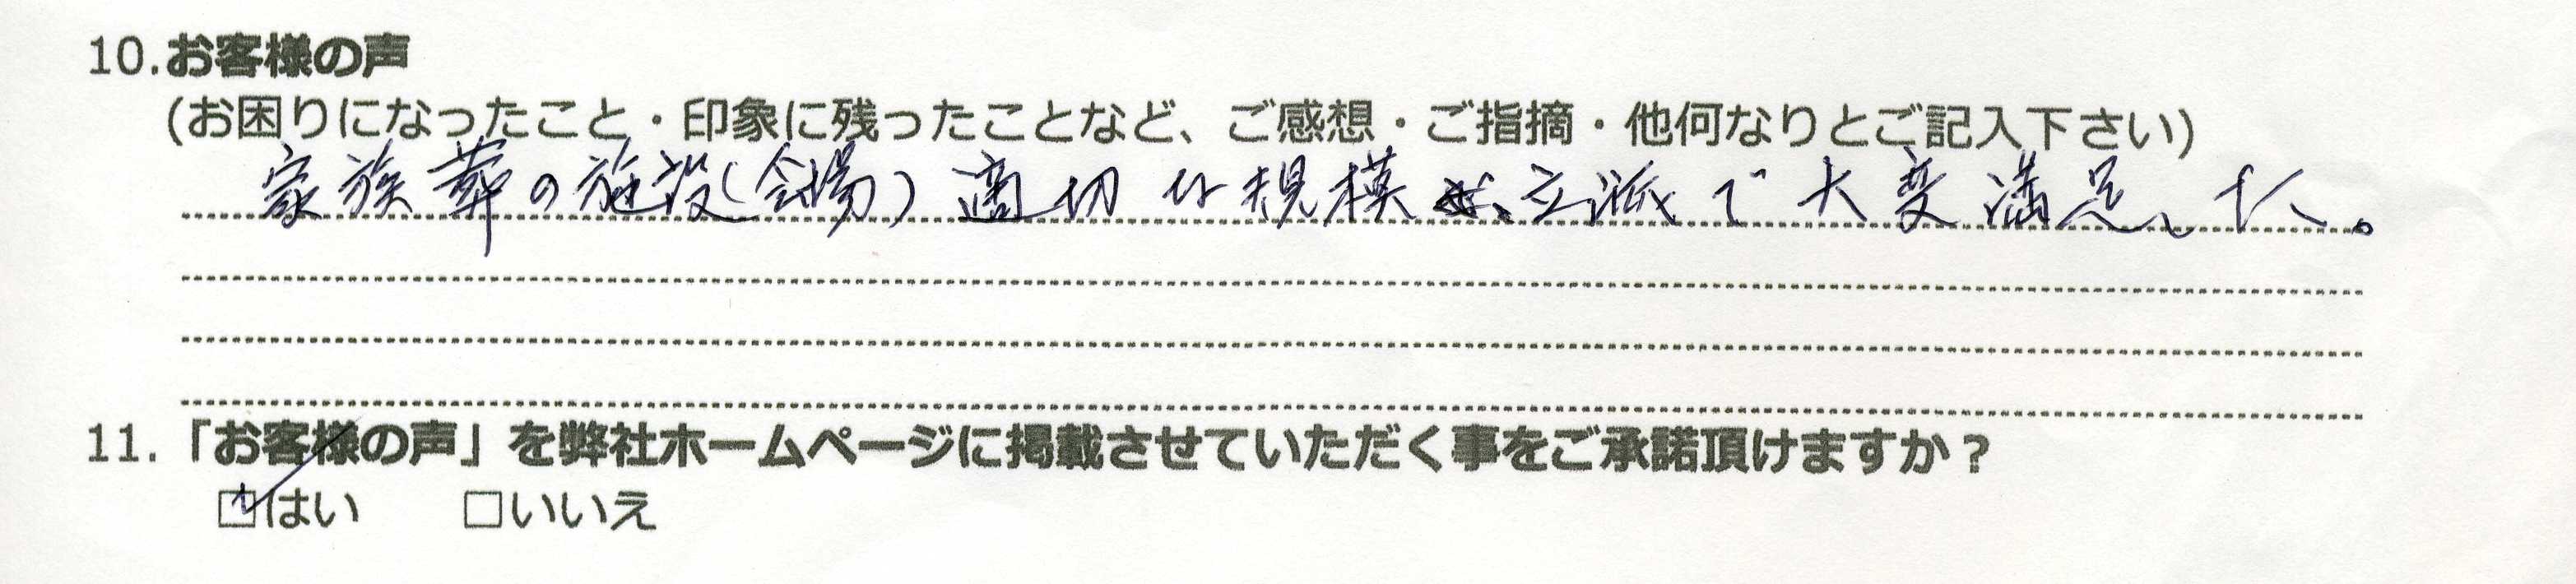 10.お客様の声
(お困りになったこと・印象に残ったことなど、ご感想・ご指摘・他何なりとご記入下さい)
家族葬の施設(会場)適切な規模、立派で大変満足した。
11.「お客様の声」を弊社ホームページに掲載させていただく事をご承諾頂けますか?
☑はい □いいえ